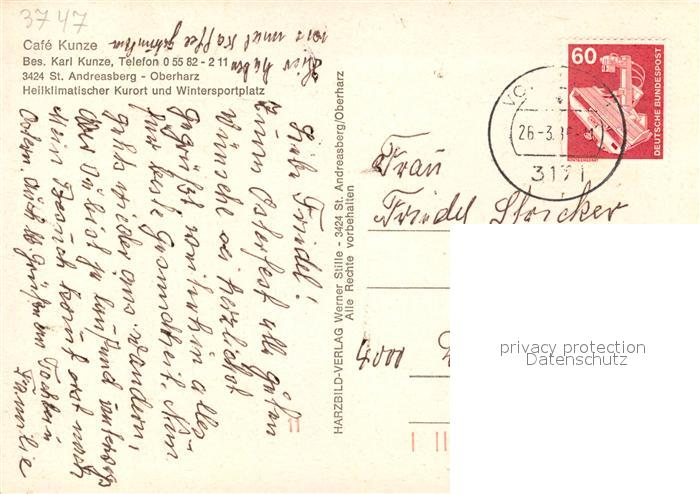 3747
Café Kunze
Bes. Karl Kunze, Telefon 0 55 82 - 2 11
3424 St. Andreasberg - Oberharz
Heilklimatischer Kurort und Wintersportplatz
Hier haben
wir mal Kaffee getrunken
Liebe Friedel!
Zum Osterfest alle guten
Wünsche sei herzlichst
gegrüßt weiterhin alles
für beste Gesundheit. Nun
gehts wieder ans wandern,
Du bist ja
Mein Besuch kommt erst nach
Ostern. Auch Grüßen an Tochter u
Familie
HARZBILD-VERLAG Werner Stille - 3424 St. Andreasberg/Oberharz
Alle Rechte vorbehalten
60
DEUTSCHE BUNDESPOST
26-3.
3171
Frau
Friedel Stricker
4000
privacy protection
Datenschutz